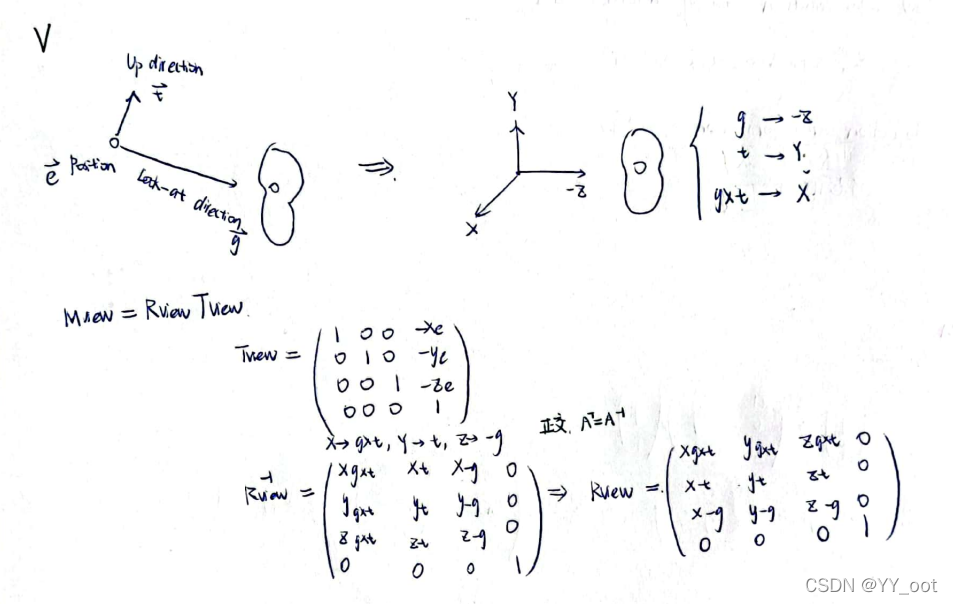 V
Up direction
t
e Position
Look-at direction
g
⇒.
Y
X
-Z
g → -z
t → Y.
g×t → X
Mview = Rview Tview.
Tview = ( 1 0 0 -xe
0 1 0 -ye
0 0 1 -ze
0 0 0 1 )
X→g×t, Y→t, Z→-g
正交. Aᵀ=A⁻¹
Rview⁻¹ = ( xg×t xt x-g 0
yg×t yt y-g 0
zg×t zt z-g 0
0 0 0 1 )
⇒ Rview = ( xg×t yg×t zg×t 0
xt yt zt 0
x-g y-g z-g 0
0 0 0 1 )
CSDN @YY_oot